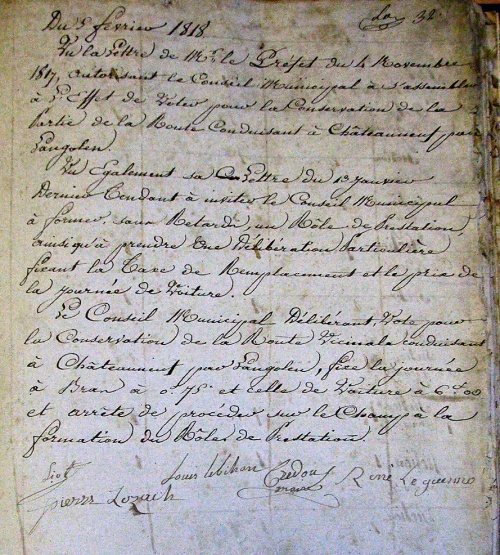 Du 5 février 1818
32
Vu la Lettre de Mr. le Préfet du 4 Novembre
1817, autorisant le Conseil Municipal à s'assembler
à l'Effet de Voter pour la Conservation de la
Partie de la Route Conduisant à Châteauneuf par
Langolen.
Vu Egalement sa Lettre du 12 Janvier
Dernier tendant à inviter le Conseil Municipal
à former, sans Retard, un Rôle de Prestation,
ainsi qu'à prendre Une Délibération Particulière
fixant la Taxe de Remplacement et le prix de
la journée de Voiture.
Le Conseil Municipal Délibérant, Vote pour
la Conservation de la Route Vicinale conduisant
à Châteauneuf par Langolen, fixe la journée
à Bras à 0.75 et celle de Voiture à 6 00
et arrête de procéder sur le Champ à la
formation du Rôles de Prestation
Louis le bihan Credou René Le guenno
pierre Lozach maire